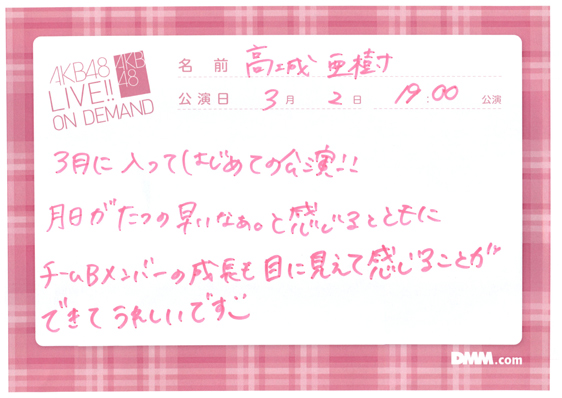 AKB48
LIVE!!
ON DEMAND
AKB
48
名前 高城 亜樹
公演日 3月 2日 19:00 公演
3月に入ってはじめての公演!!
月日がたつの早いなぁ。と感じるとともに
チームBメンバーの成長も目に見えて感じることが
できてうれしいです
DMM.com